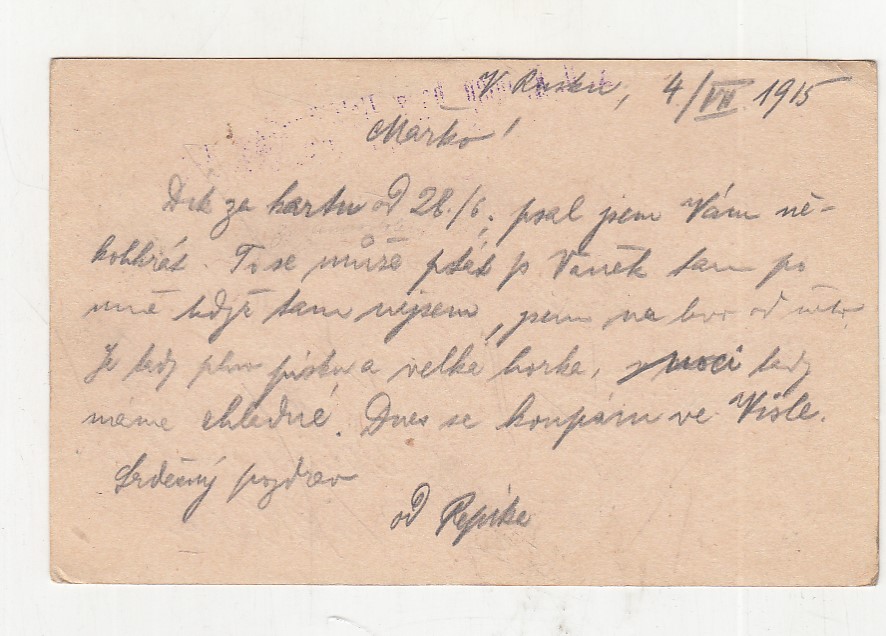 V Rusku, 4./VII. 1915
Marko!
Dík za kartu od 28./6., psal jsem Vám ně-
kolikrát. To se může ptát p. Vaněk tam po
mně když tam nejsem, jsem na
Je tady plno písku a velká horka, v noci tady
máme chladné. Dnes se koupám ve Visle.
Srdečný pozdrav
od Pepíka